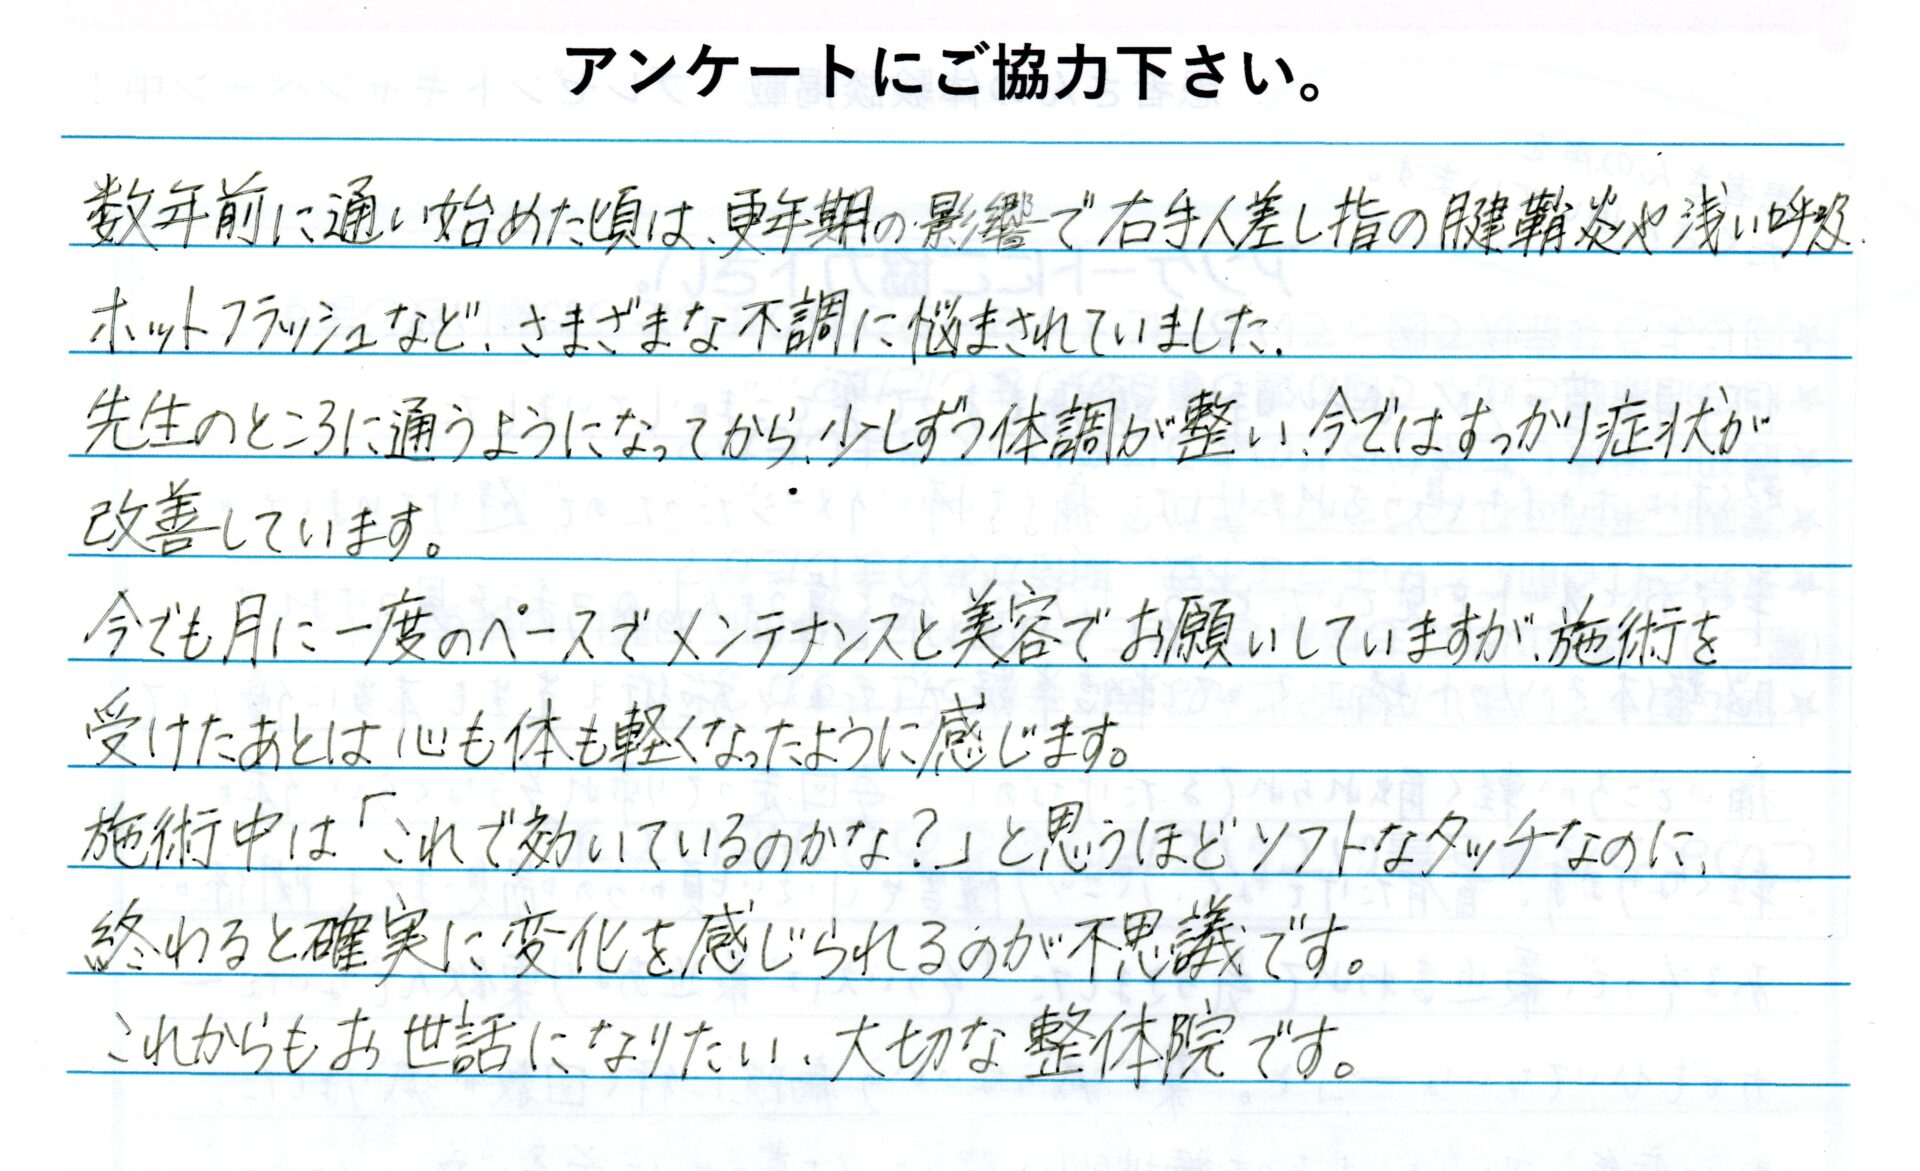 アンケートにご協力下さい。
数年前に通い始めた頃は、更年期の影響で右手人差し指の腱鞘炎や浅い呼吸、
ホットフラッシュなど、さまざまな不調に悩まされていました。
先生のところに通うようになってから、少しずつ体調が整い、今ではすっかり症状が
改善しています。
今でも月に一度のペースでメンテナンスと美容でお願いしていますが、施術を
受けたあとは心も体も軽くなったように感じます。
施術中は「これで効いているのかな?」と思うほどソフトなタッチなのに、
終わると確実に変化を感じられるのが不思議です。
これからもお世話になりたい、大切な整体院です。